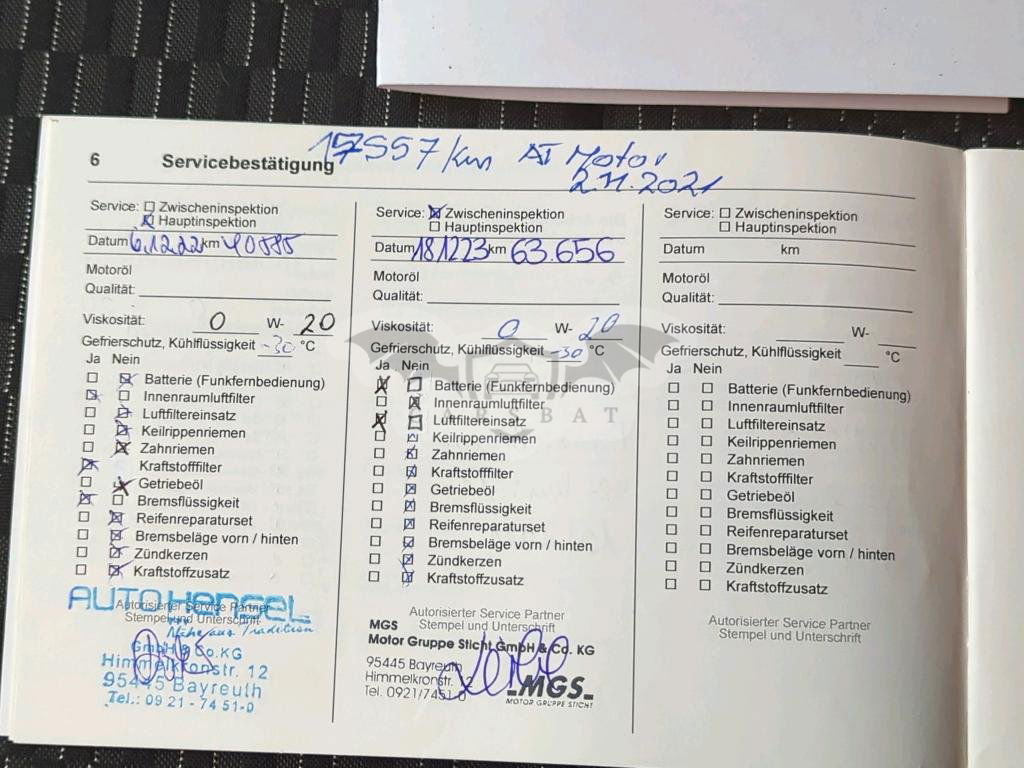 17557/km AT Motor
2.11.2021
6 Servicebestätigung
Service: Zwischeninspektion
Hauptinspektion
Datum 6.12.22 km 40585
Motoröl
Qualität:
Viskosität: 0 W- 20
Gefrierschutz, Kühlflüssigkeit -30 °C
Ja Nein
Batterie (Funkfernbedienung)
Innenraumluftfilter
Luftfiltereinsatz
Keilrippenriemen
Zahnriemen
Kraftstofffilter
Getriebeöl
Bremsflüssigkeit
Reifenreparaturset
Bremsbeläge vorn / hinten
Zündkerzen
Kraftstoffzusatz
Autorisierter Service Partner
Stempel und Unterschrift
AUTO HENSEL
Nähe aus Tradition
GmbH & Co.KG
Himmelkronstr. 12
95445 Bayreuth
Tel.: 09 21 - 74 51-0
Service: Zwischeninspektion
Hauptinspektion
Datum 181223 km 63.656
Motoröl
Qualität:
Viskosität: 0 W- 20
Gefrierschutz, Kühlflüssigkeit -30 °C
Ja Nein
Batterie (Funkfernbedienung)
Innenraumluftfilter
Luftfiltereinsatz
Keilrippenriemen
Zahnriemen
Kraftstofffilter
Getriebeöl
Bremsflüssigkeit
Reifenreparaturset
Bremsbeläge vorn / hinten
Zündkerzen
Kraftstoffzusatz
Autorisierter Service Partner
Stempel und Unterschrift
MGS
Motor Gruppe Sticht GmbH & Co. KG
95445 Bayreuth
Himmelkronstr. 12
Tel. 0921/7451-0
MGS
MOTOR GRUPPE STICHT
Service: Zwischeninspektion
Hauptinspektion
Datum km
Motoröl
Qualität:
Viskosität: W-
Gefrierschutz, Kühlflüssigkeit °C
Ja Nein
Batterie (Funkfernbedienung)
Innenraumluftfilter
Luftfiltereinsatz
Keilrippenriemen
Zahnriemen
Kraftstofffilter
Getriebeöl
Bremsflüssigkeit
Reifenreparaturset
Bremsbeläge vorn / hinten
Zündkerzen
Kraftstoffzusatz
Autorisierter Service Partner
Stempel und Unterschrift